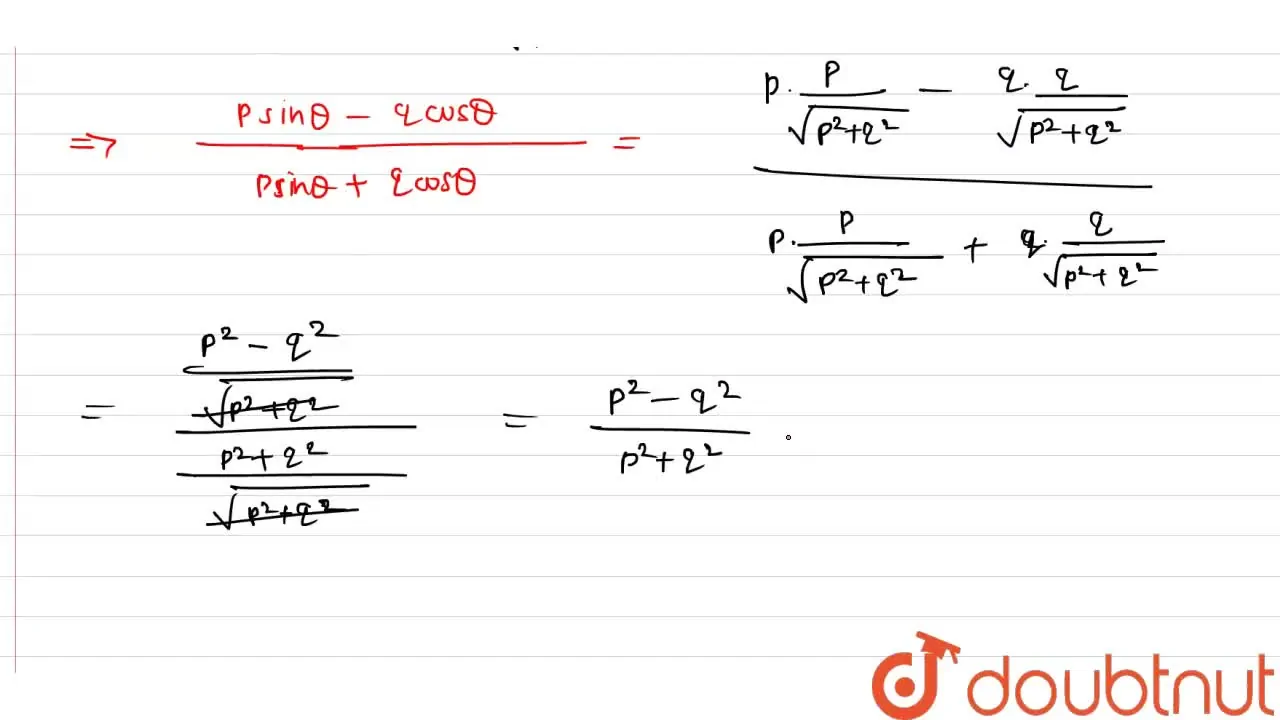 ⇒ (p sinθ − q cosθ)/(p sinθ + q cosθ) = (p · p/√(p²+q²) − q · q/√(p²+q²))/(p · p/√(p²+q²) + q · q/√(p²+q²))
= ((p² − q²)/√(p²+q²))/((p² + q²)/√(p²+q²)) = (p² − q²)/(p² + q²)
doubtnut